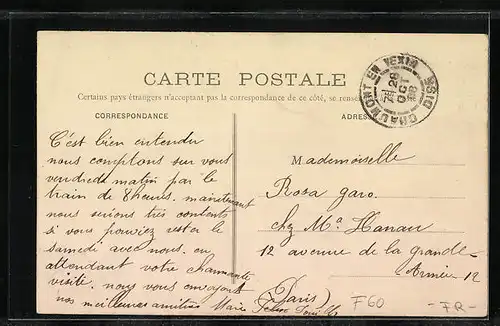 CARTE POSTALE
Certains pays étrangers n'acceptant pas la correspondance de ce côté, se rense
CORRESPONDANCE
ADRES
CHAUMONT EN VEXIN OISE
28
OCT
08
C'est bien entendu
nous comptons sur vous
vendredi matin par le
train de 8 heures. maintenant
nous serions très contents
si vous pouviez rester le
samedi avec nous. en
attendant votre charmante
visite, nous vous envoyons
nos meilleures amitiés Marie
Mademoiselle
Rosa Garo.
chez Ma Hanau
12 avenue de la grande
Armée 12
(Paris)
F60
-FR-